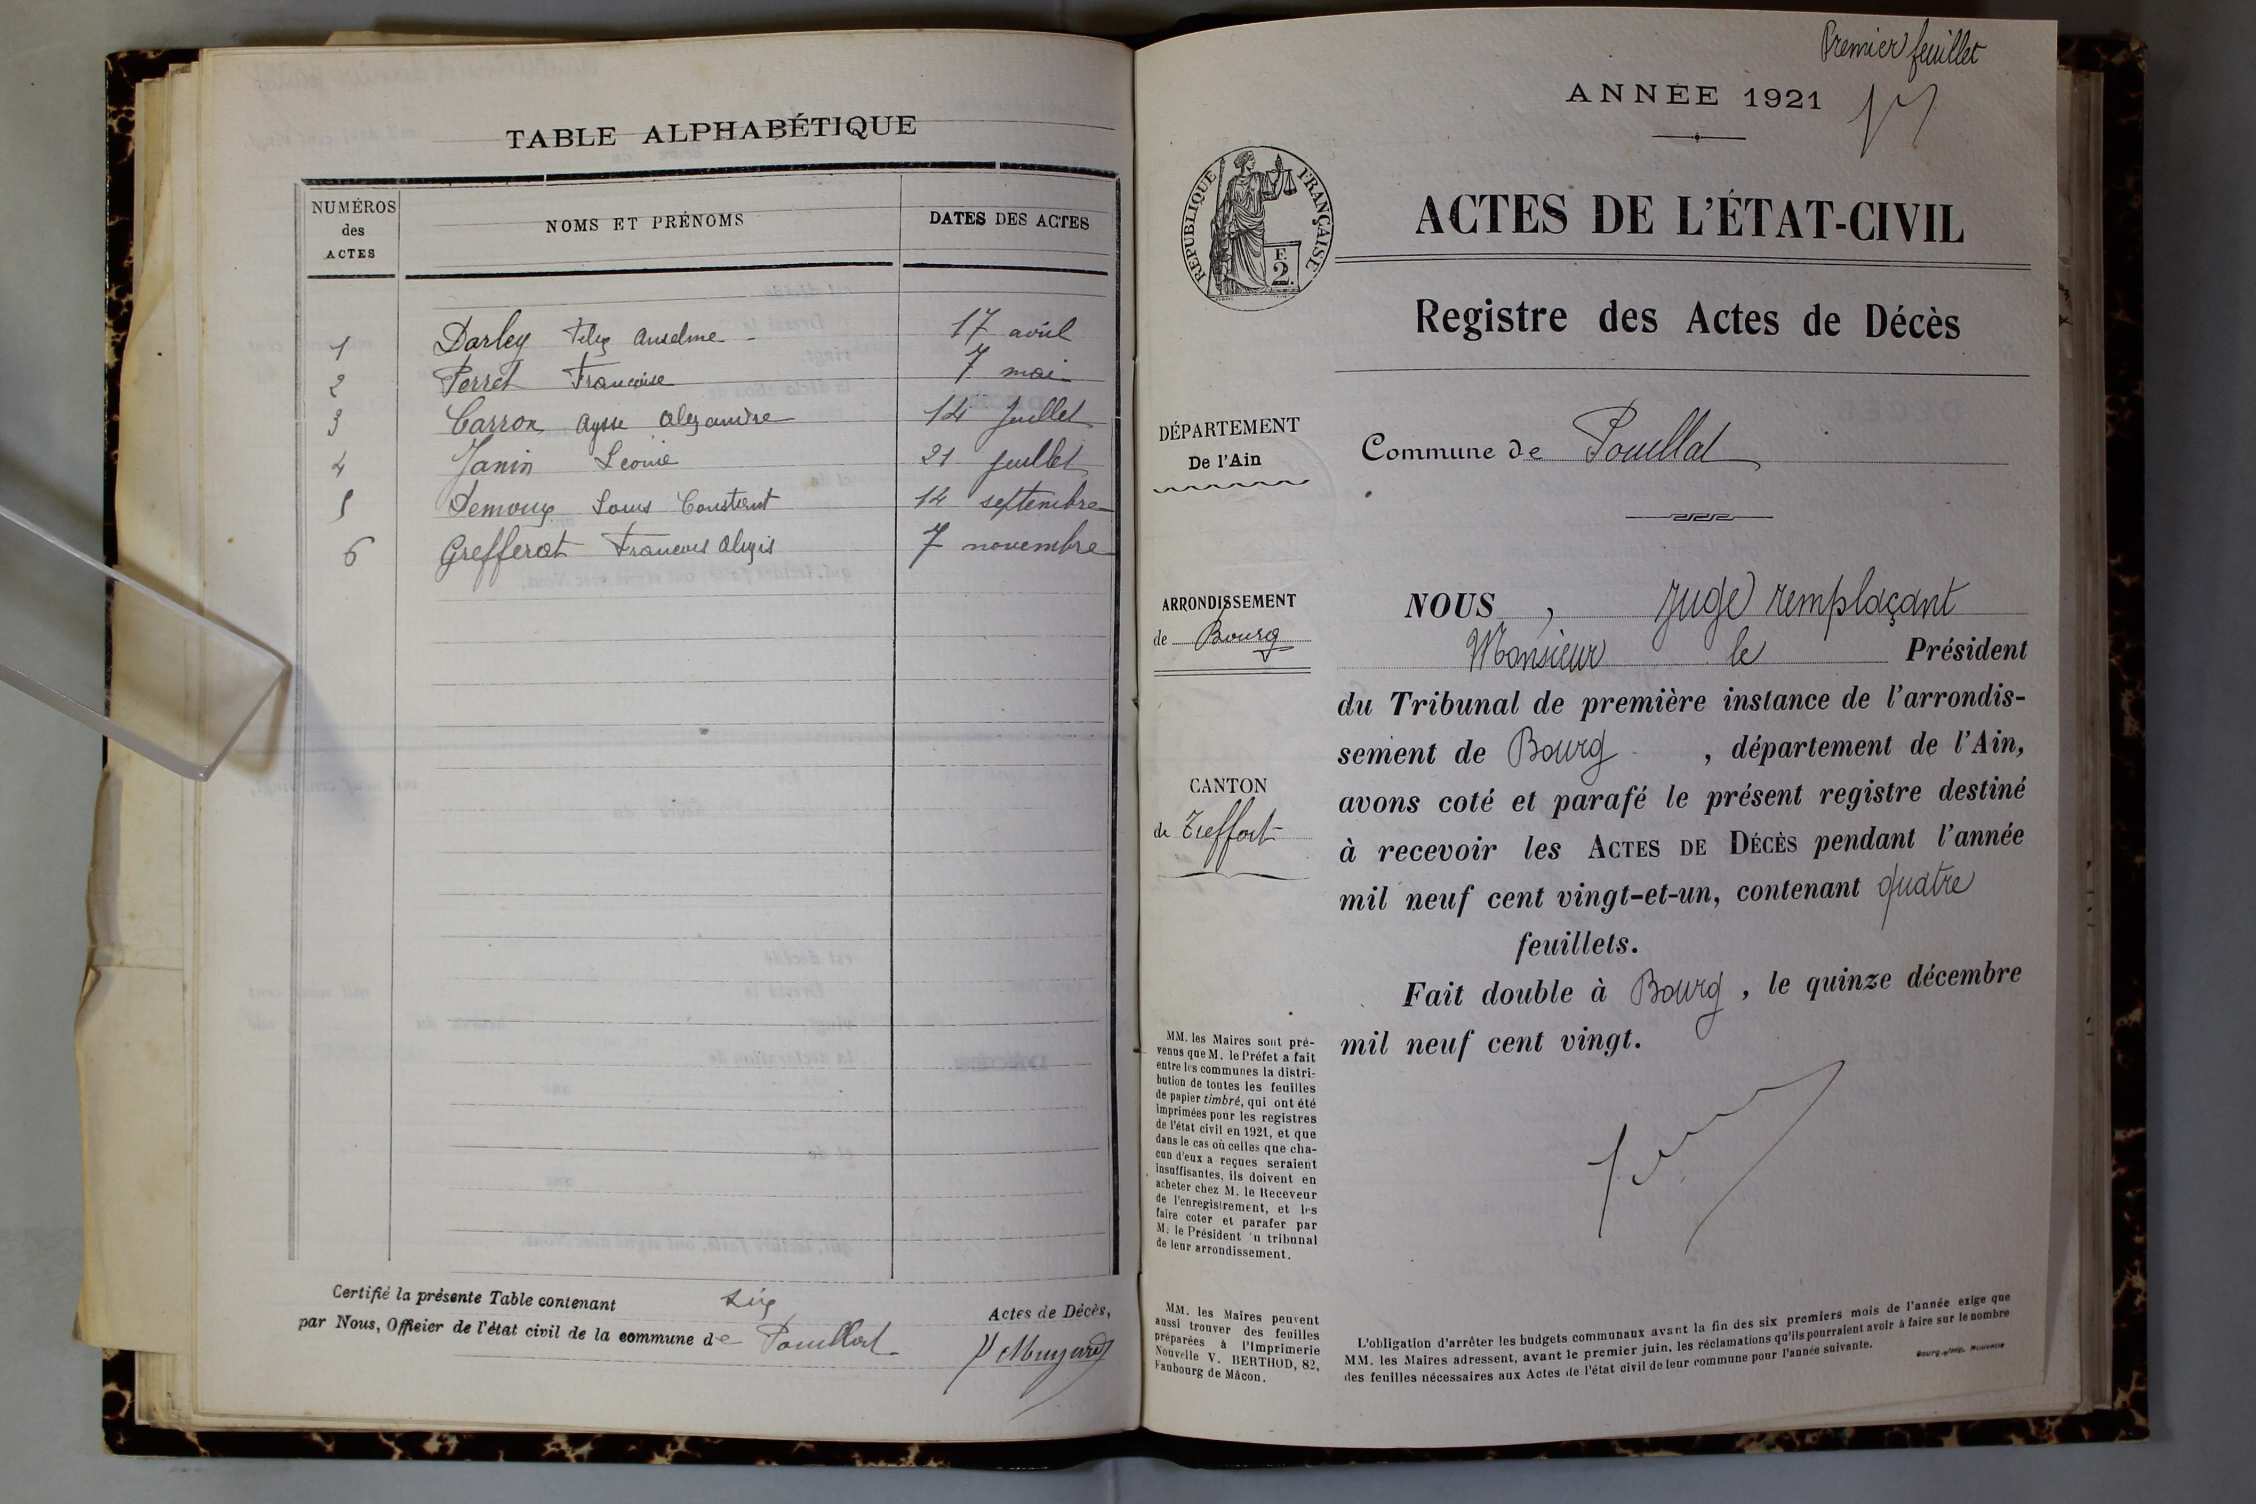 TABLE ALPHABÉTIQUE
NUMÉROS
des
ACTES
NOMS ET PRÉNOMS
DATES DES ACTES
1 Darley Felix Anselme 17 avril
2 Perret Françoise 7 mai
3 Carron Alexandre 14 Juillet
4 Janin Léonie 21 juillet
5 Demoux Louis Constant 14 septembre
6 Grefferat François Alexis 7 novembre
Certifié la présente Table contenant six Actes de Décès,
par Nous, Officier de l'état civil de la commune de Pouillat
Premier feuillet
ANNÉE 1921
RÉPUBLIQUE FRANÇAISE
F.
2.
ACTES DE L'ÉTAT-CIVIL
Registre des Actes de Décès
DÉPARTEMENT
De l'Ain
Commune de Pouillat
ARRONDISSEMENT
de Bourg
CANTON
de Treffort
MM. les Maires sont pré-
venus que M. le Préfet a fait
entre les communes la distri-
bution de toutes les feuilles
de papier timbré, qui ont été
imprimées pour les registres
de l'état civil en 1921, et que
dans le cas où celles que cha-
cun d'eux a reçues seraient
insuffisantes, ils doivent en
acheter chez M. le Receveur
de l'enregistrement, et les
faire coter et parafer par
M. le Président du tribunal
de leur arrondissement.
MM. les Maires peuvent
aussi trouver des feuilles
préparées à l'Imprimerie
Nouvelle V. BERTHOD, 82,
Faubourg de Mâcon.
NOUS, Juge remplaçant
Monsieur le Président
du Tribunal de première instance de l'arrondis-
sement de Bourg, département de l'Ain,
avons coté et parafé le présent registre destiné
à recevoir les ACTES DE DÉCÈS pendant l'année
mil neuf cent vingt-et-un, contenant quatre
feuillets.
Fait double à Bourg, le quinze décembre
mil neuf cent vingt.
L'obligation d'arrêter les budgets communaux avant la fin des six premiers mois de l'année exige que
MM. les Maires adressent, avant le premier juin, les réclamations qu'ils pourraient avoir à faire sur le nombre
des feuilles nécessaires aux Actes de l'état civil de leur commune pour l'année suivante.
Bourg, Imp. Nouvelle